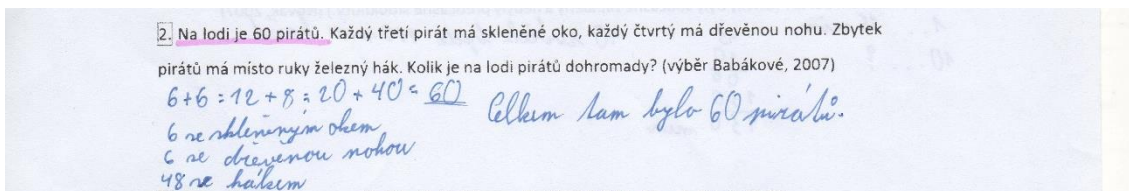 2. Na lodi je 60 pirátů. Každý třetí pirát má skleněné oko, každý čtvrtý má dřevěnou nohu. Zbytek
pirátů má místo ruky železný hák. Kolik je na lodi pirátů dohromady? (výběr Babákové, 2007)
6+6=12+8=20+40=60 Celkem tam bylo 60 pirátů.
6 se skleněným okem
6 se dřevěnou nohou
48 se hákem